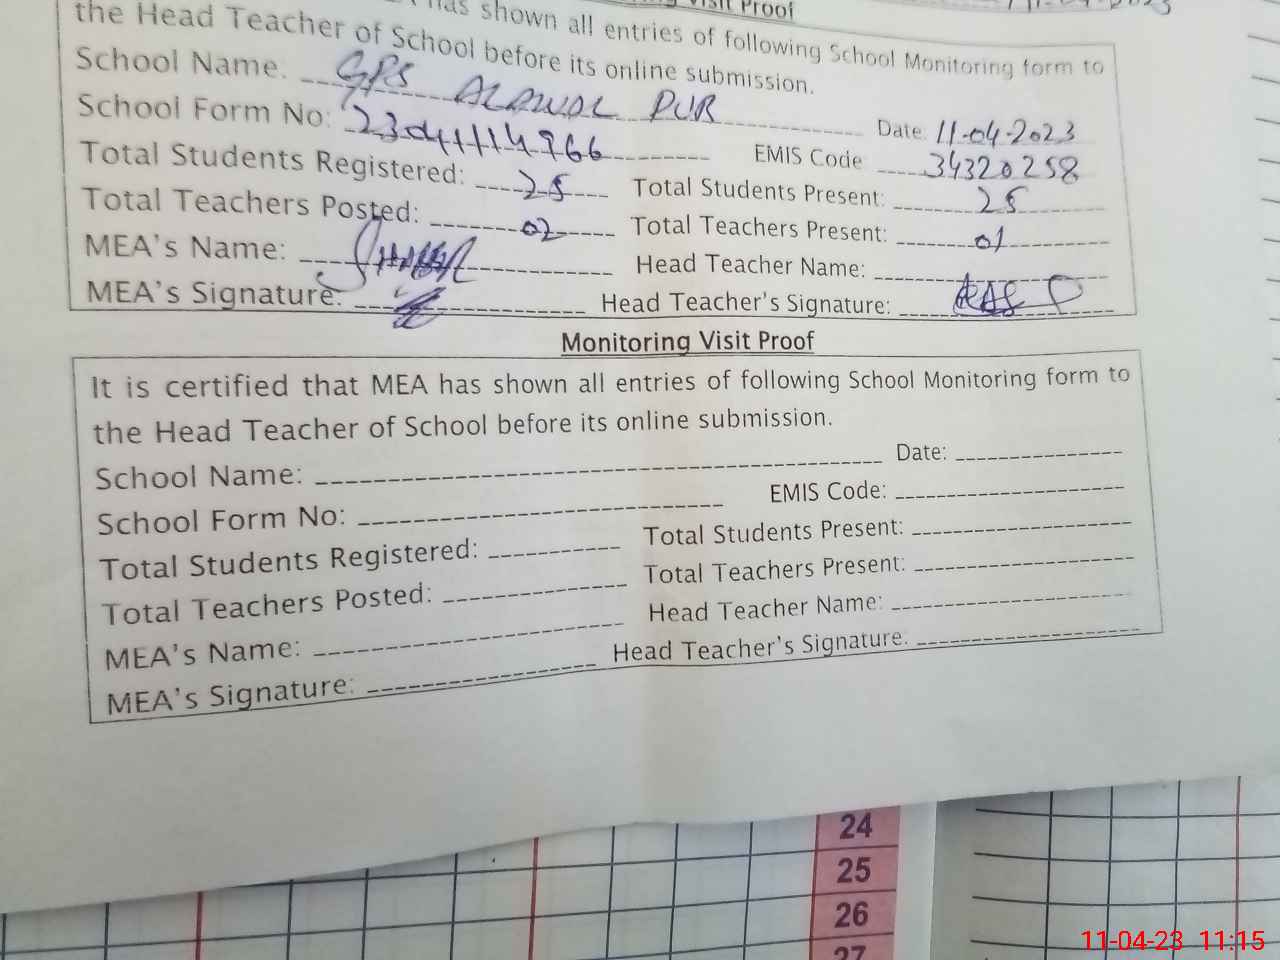 Visit Proof
has shown all entries of following School Monitoring form to
the Head Teacher of School before its online submission.
School Name: GPS ALAWAL PUR Date: 11-04-2023
School Form No: 23041114966 EMIS Code 34320258
Total Students Registered: 25 Total Students Present: 25
Total Teachers Posted: 02 Total Teachers Present: 01
MEA's Name: Head Teacher Name:
MEA's Signature: Head Teacher's Signature:
Monitoring Visit Proof
It is certified that MEA has shown all entries of following School Monitoring form to
the Head Teacher of School before its online submission.
School Name: Date:
School Form No: EMIS Code:
Total Students Registered: Total Students Present:
Total Teachers Posted: Total Teachers Present:
MEA's Name: Head Teacher Name:
MEA's Signature: Head Teacher's Signature.
24
25
26
27
11-04-23 11:15